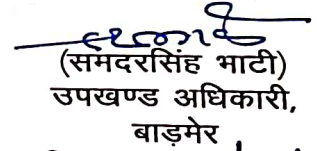 (समंदरसिंह भाटी)
उपखण्ड अधिकारी,
बाड़मेर